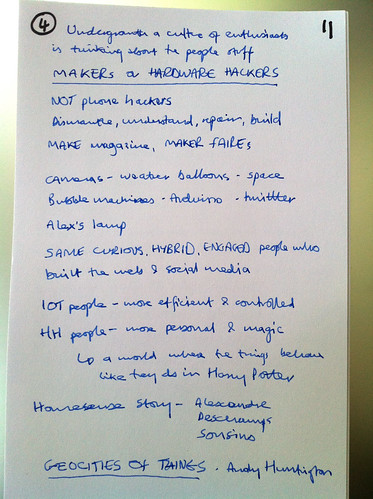 ④ Underneath a culture of enthusiasts 11
is thinking about the people stuff
MAKERS or HARDWARE HACKERS
NOT phone hackers
Dismantle, understand, repair, build
MAKE magazine, MAKER FAIREs
cameras - weather balloons - space
Bubble machines - Arduino - twitter
Alex's lamp
SAME CURIOUS, HYBRID, ENGAGED people who
built the web & social media
IOT people - more efficient & controlled
HH people - more personal & magic
↳ a world where the things behave
like they do in Harry Potter
Homesense Story - Alexandre
Deschamps
Sonsino
GEOCITIES OF THINGS. Andy Huntington